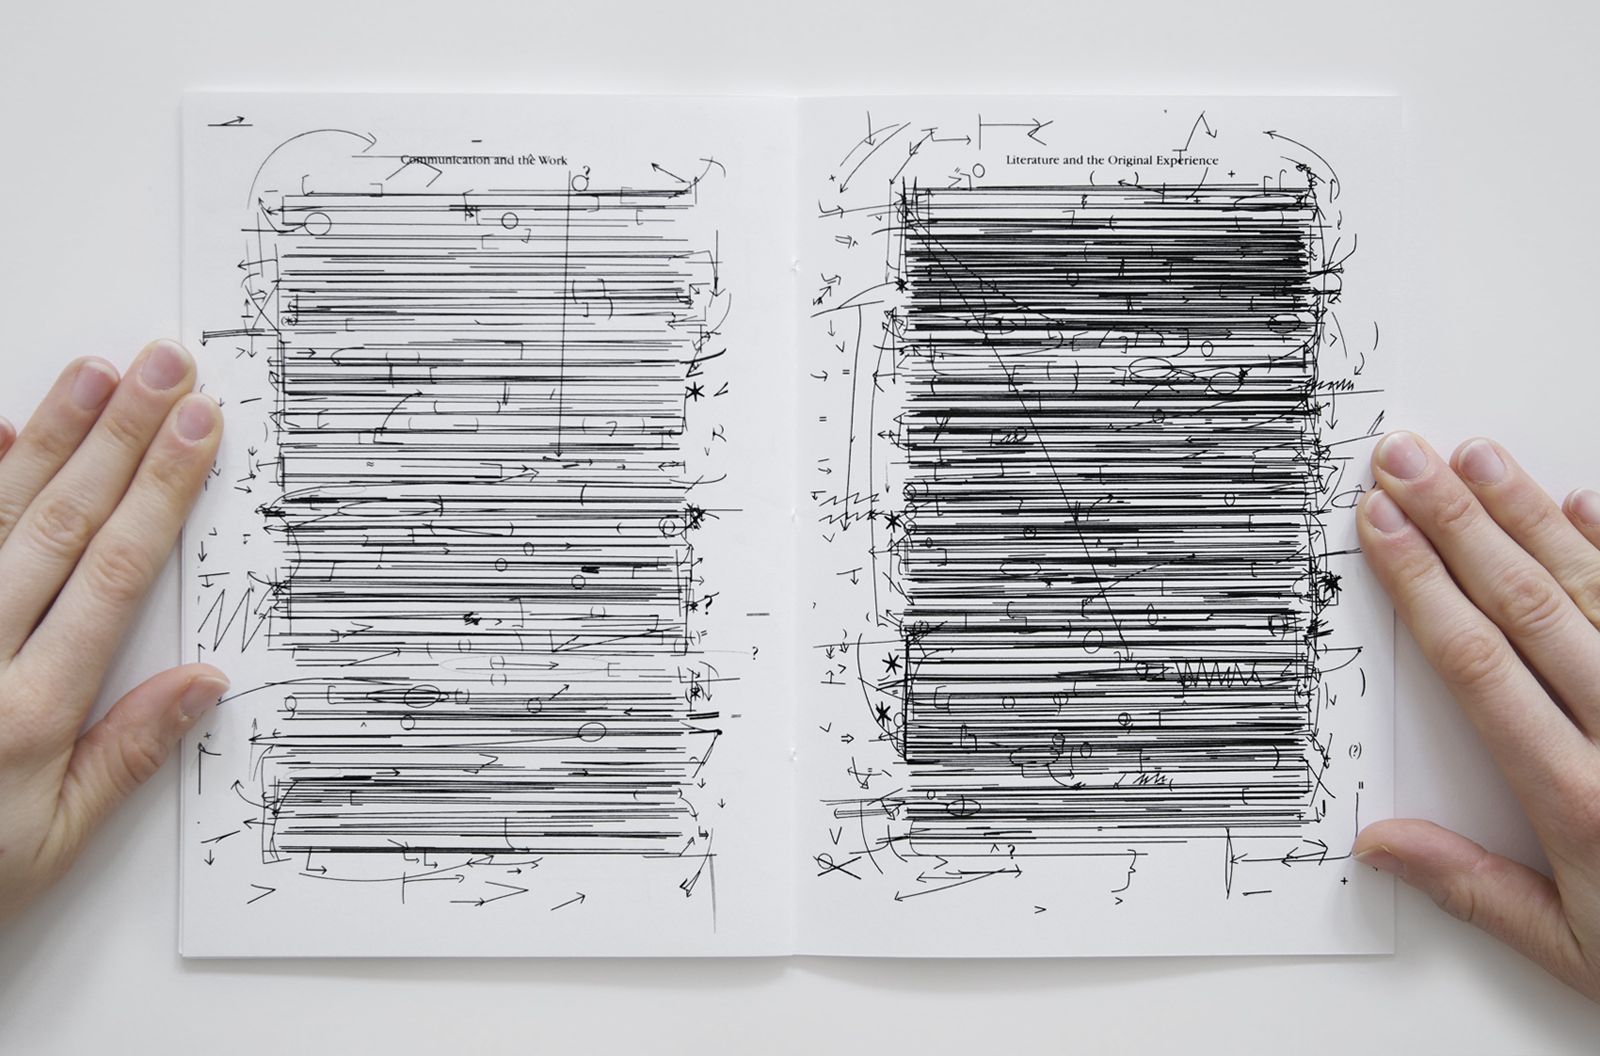 Communication and the Work
?
?
?
Literature and the Original Experience
(?)
?